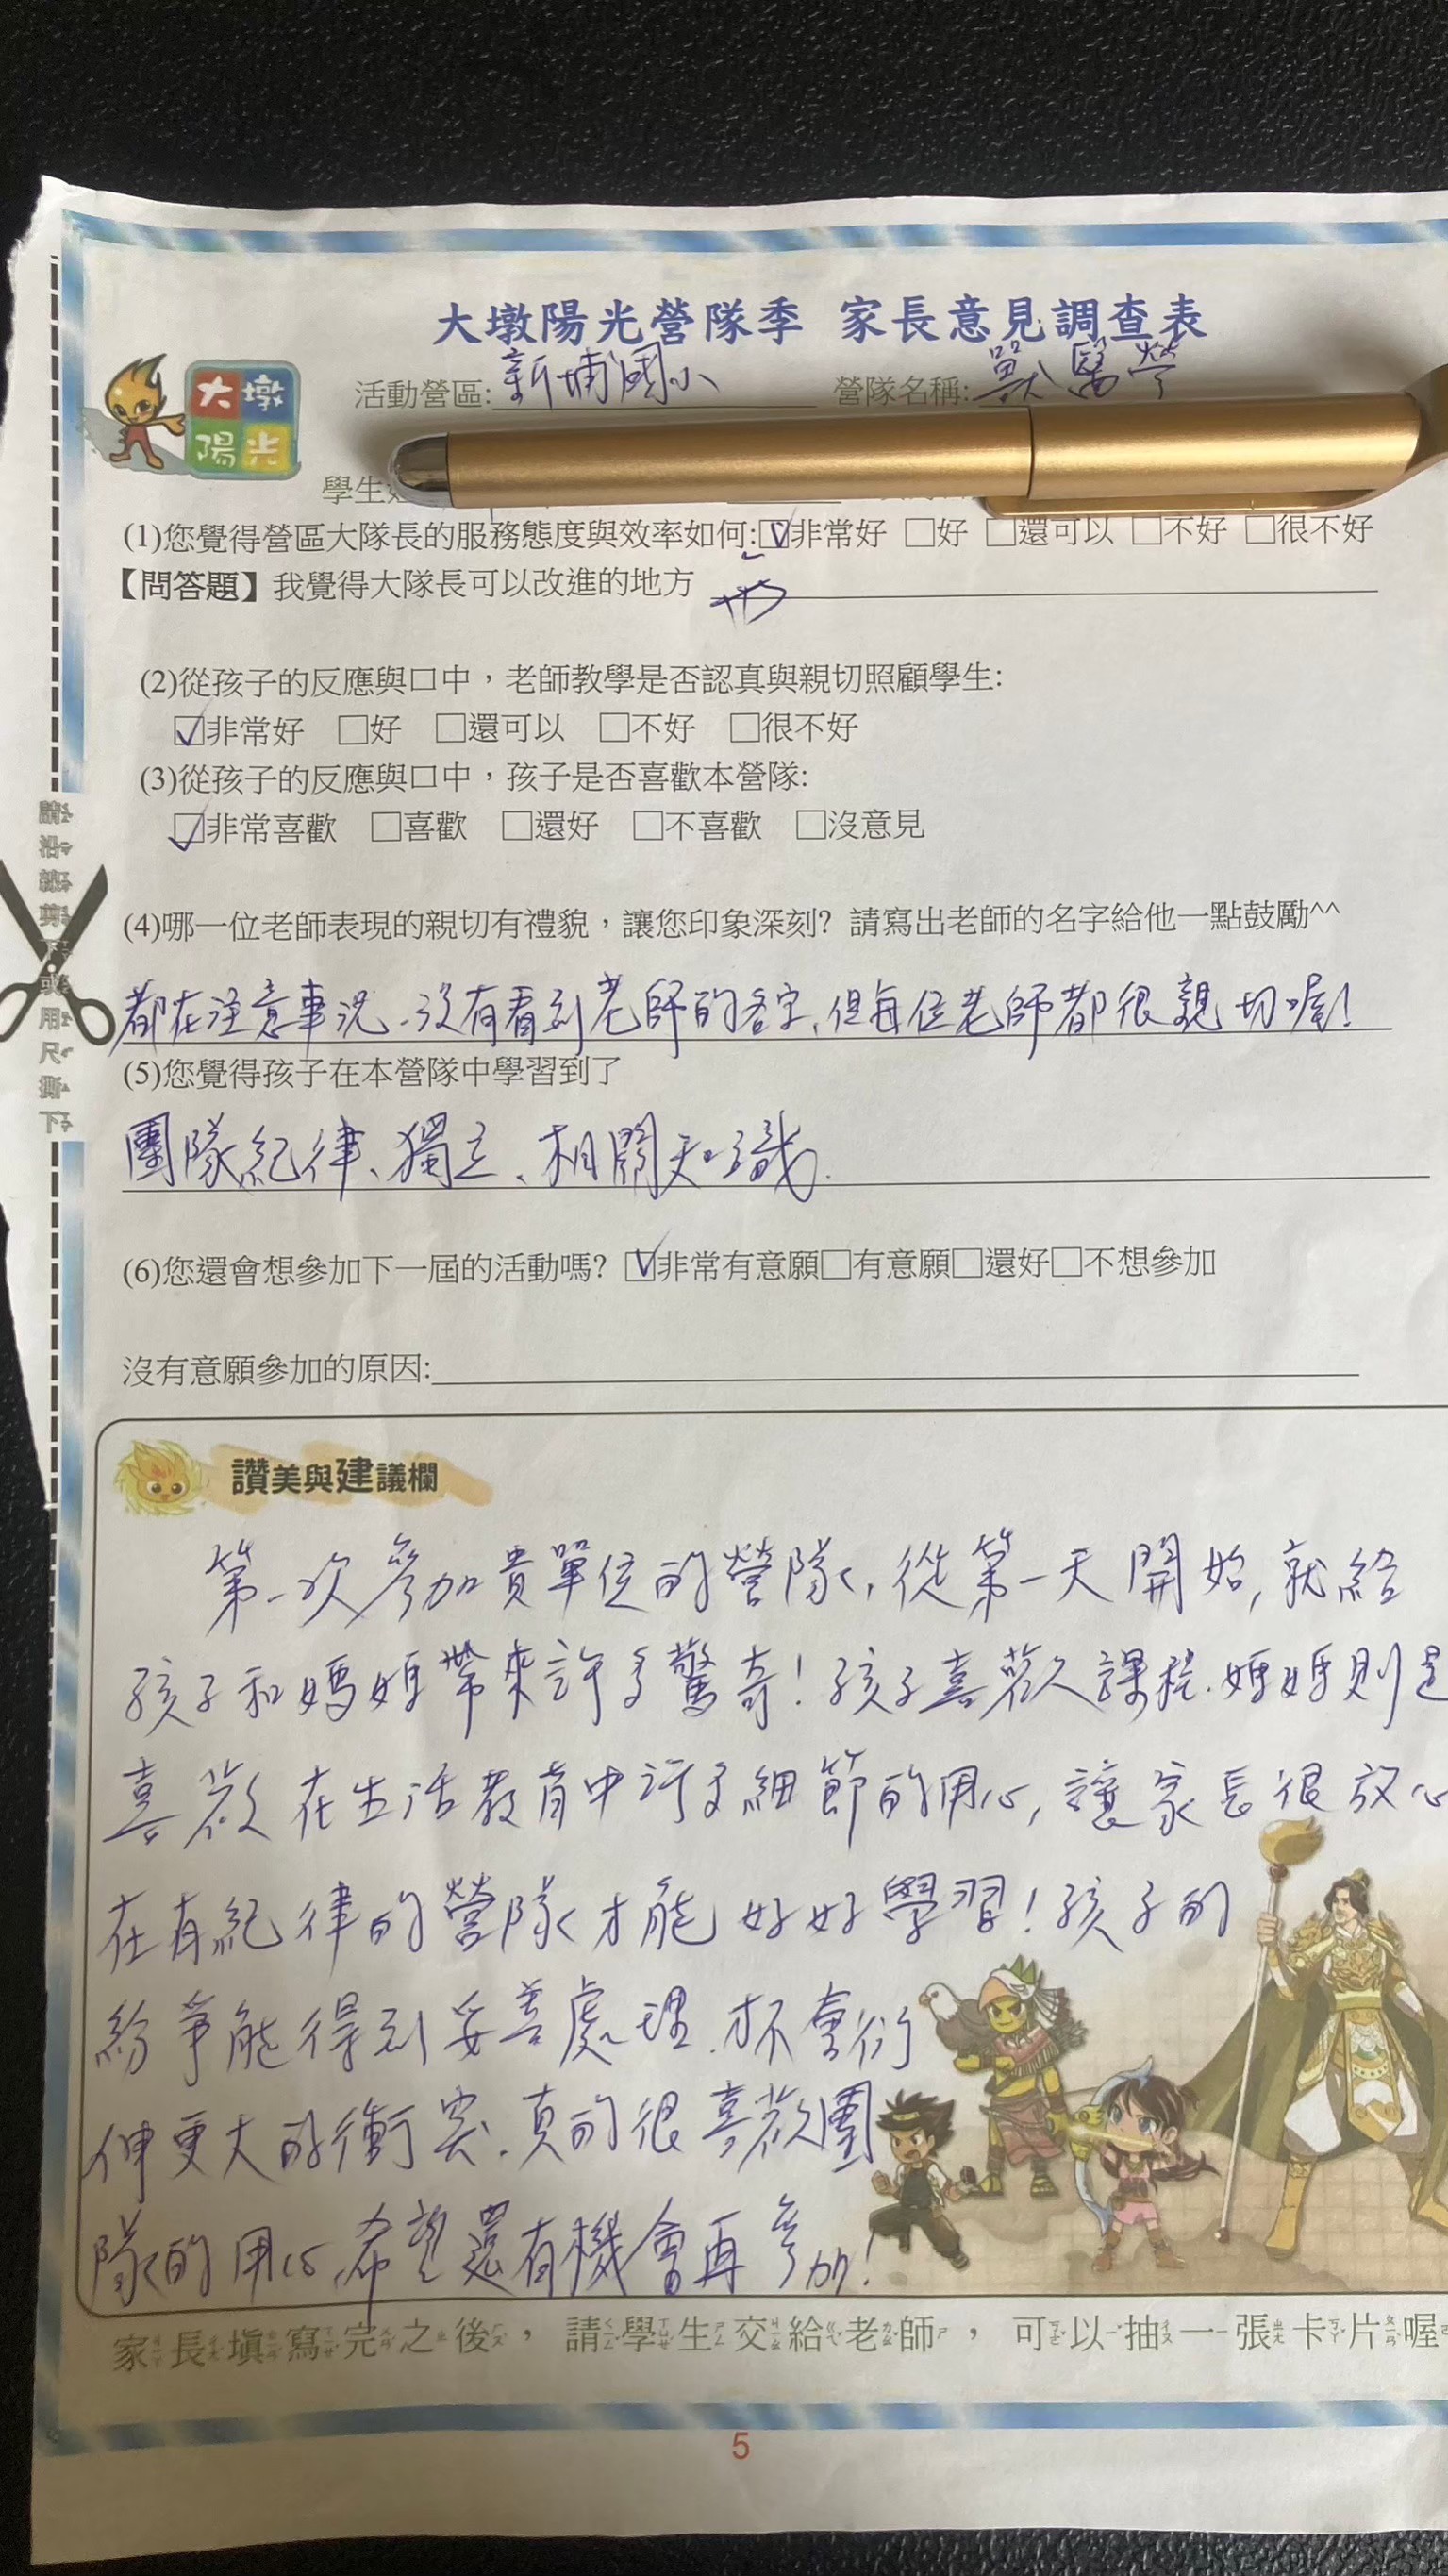 大墩陽光營隊季 家長意見調查表
大墩
陽光
活動營區:新埔國小 營隊名稱:獸醫營
學生
(1)您覺得營區大隊長的服務態度與效率如何:☑非常好 □好 □還可以 □不好 □很不好
【問答題】我覺得大隊長可以改進的地方
(2)從孩子的反應與口中，老師教學是否認真與親切照顧學生:
☑非常好 □好 □還可以 □不好 □很不好
(3)從孩子的反應與口中，孩子是否喜歡本營隊:
☑非常喜歡 □喜歡 □還好 □不喜歡 □沒意見
(4)哪一位老師表現的親切有禮貌，讓您印象深刻? 請寫出老師的名字給他一點鼓勵^^
都在注意事況、沒有看到老師的名字、但每位老師都很親切喔!
(5)您覺得孩子在本營隊中學習到了
團隊紀律、獨立、相關知識.
(6)您還會想參加下一屆的活動嗎? ☑非常有意願□有意願□還好□不想參加
沒有意願參加的原因:
讚美與建議欄
第一次參加貴單位的營隊, 從第一天開始, 就給
孩子和媽媽帶來許多驚奇! 孩子喜歡課程、媽媽則是
喜歡在生活教育中許多細節的用心, 讓家長很放心
在有紀律的營隊才能好好學習! 孩子的
紛爭能得到妥善處理、才不會衍
伸更大的衝突、真的很喜歡團
隊的用心、希望還有機會再參加!
家長填寫完之後，請學生交給老師，可以抽一張卡片喔
5
請沿線剪下或用尺撕下